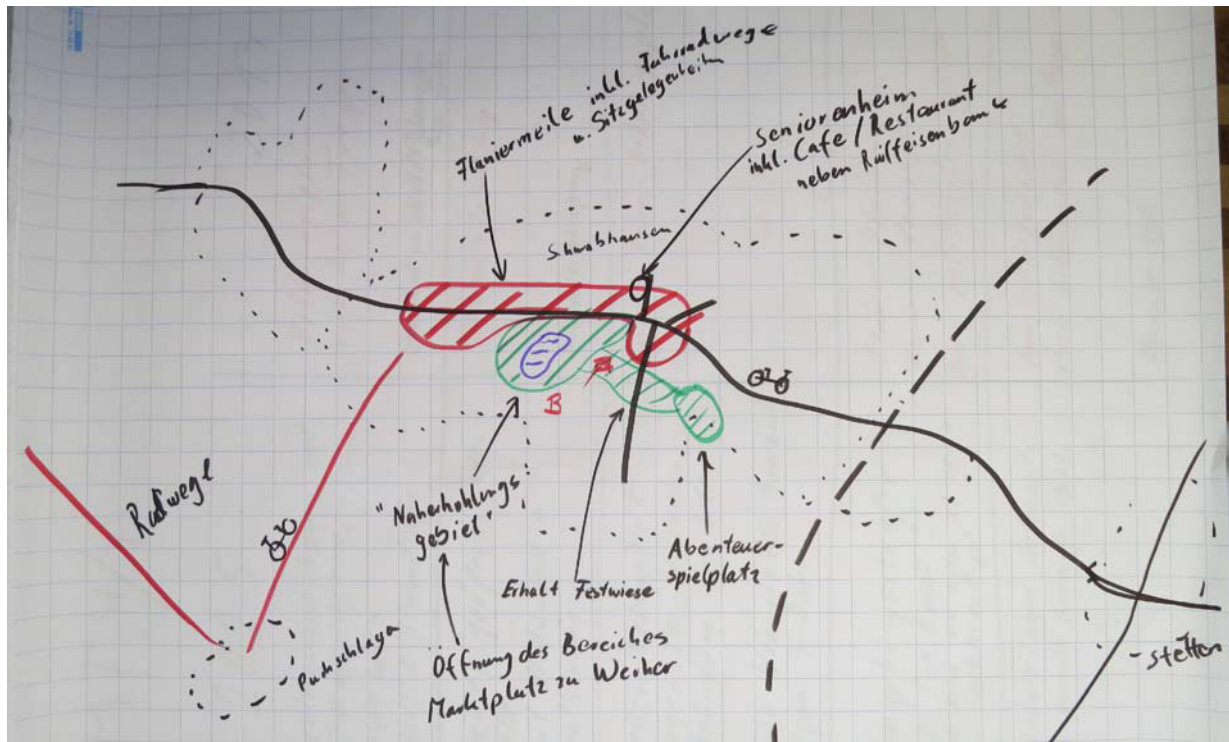 Flaniermeile inkl. Fahrradwege
u. Sitzgelegenheiten
Seniorenheim
inkl. Cafe / Restaurant
neben Raiffeisenbank
Schwabhausen
B
Radwege
"Naherhohlungs
gebiet"
Erhalt Festwiese
Abenteuer-
spielplatz
Puchschlagen
Öffnung des Bereiches
Marktplatz zu Weiher
- stetten